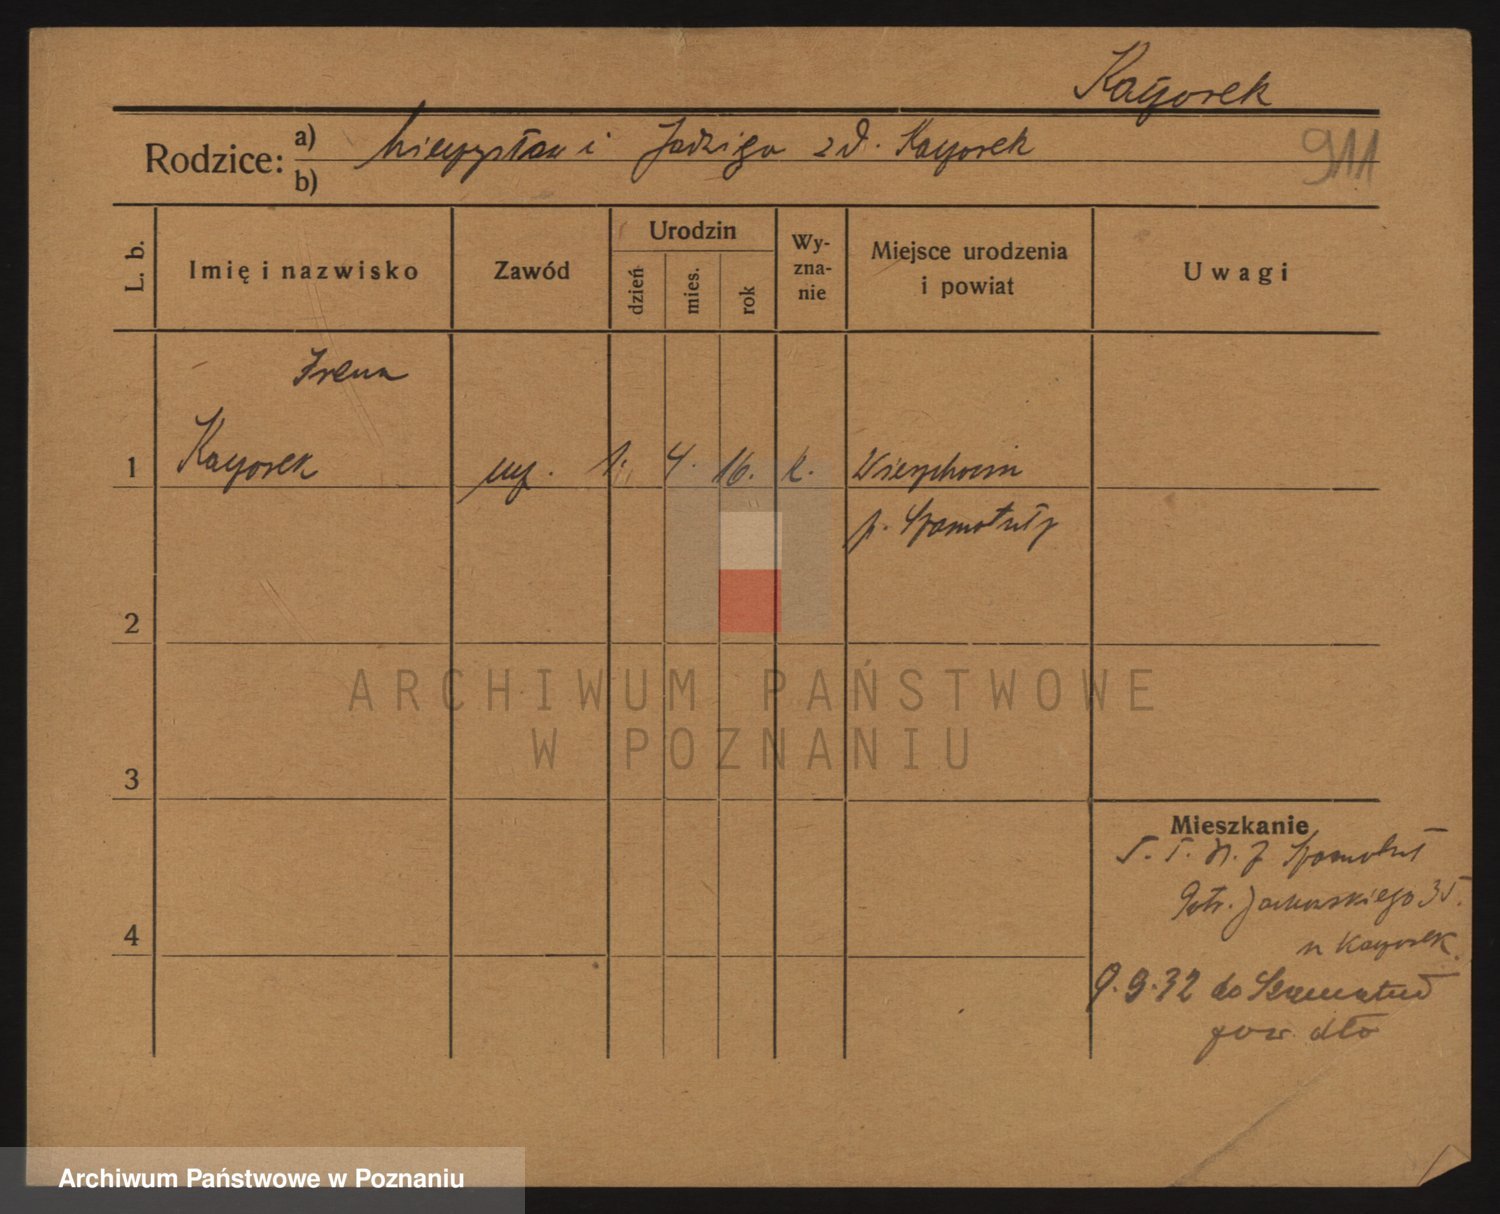 Kayorek
911
Rodzice: a) Mieczysław i Jadwiga z d. Kayorek
b)
L. b.
Imię i nazwisko
Zawód
Urodzin
dzień
mies.
rok
Wy-
zna-
nie
Miejsce urodzenia
i powiat
Uwagi
Irena
1 Kayorek 1. 4. 16. k.
p. Szamotuły
2
3
4
Mieszkanie
Szamotuł
35.
Kayorek
9.9.32 do Szamotuł
pow. dto
ARCHIWUM PAŃSTWOWE
W POZNANIU
Archiwum Państwowe w Poznaniu